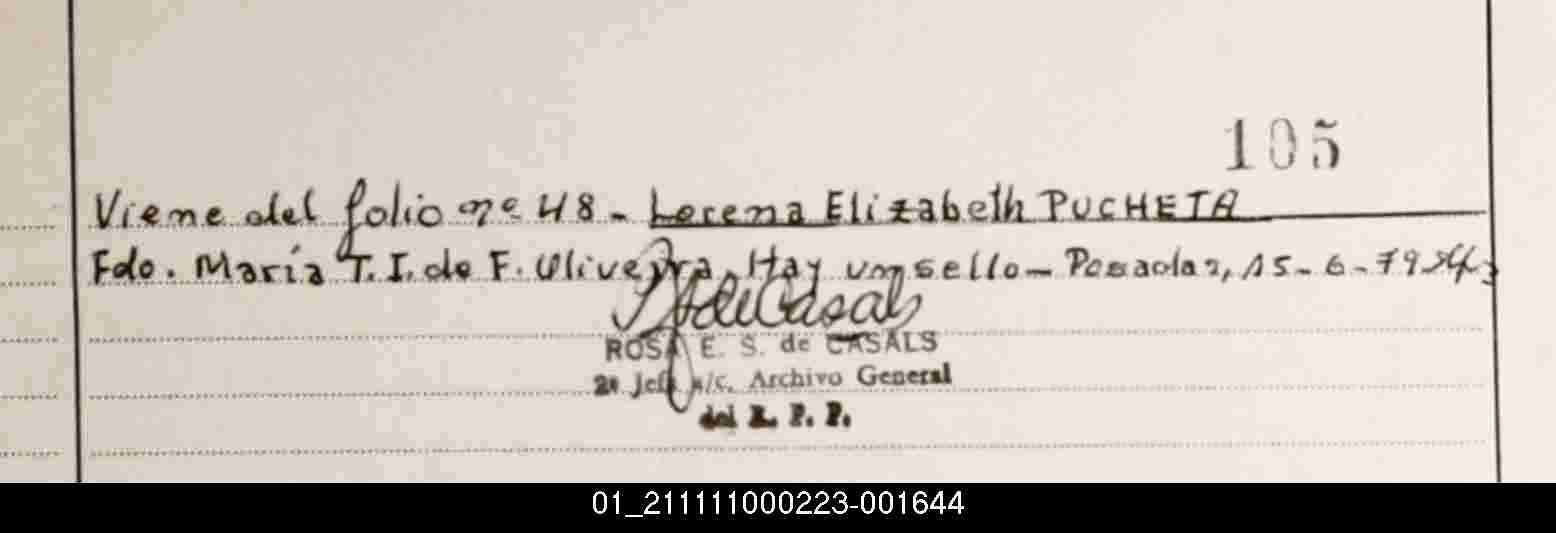 105
Viene del folio nº 48 - Lorena Elizabeth PUCHETA
Fdo. María T. I. de F. Oliveyra. Hay un sello - Posadas, 15-6-79
ROSA E. S. de CASALS
2ª Jefe a/c. Archivo General
del R. P. P.
01_211111000223-001644